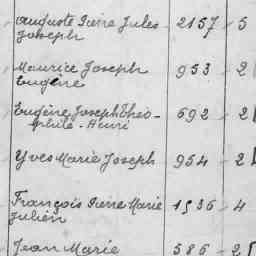 Auguste Pierre Jules 2157 - 5
Joseph
Maurice Joseph 953 - 2
Eugène
Eugène Joseph Théo- 692 - 2
phile - Henri
Yves Marie Joseph 954 - 2
François Pierre Marie 1936 - 4
Julien
Jean Marie 586 - 2